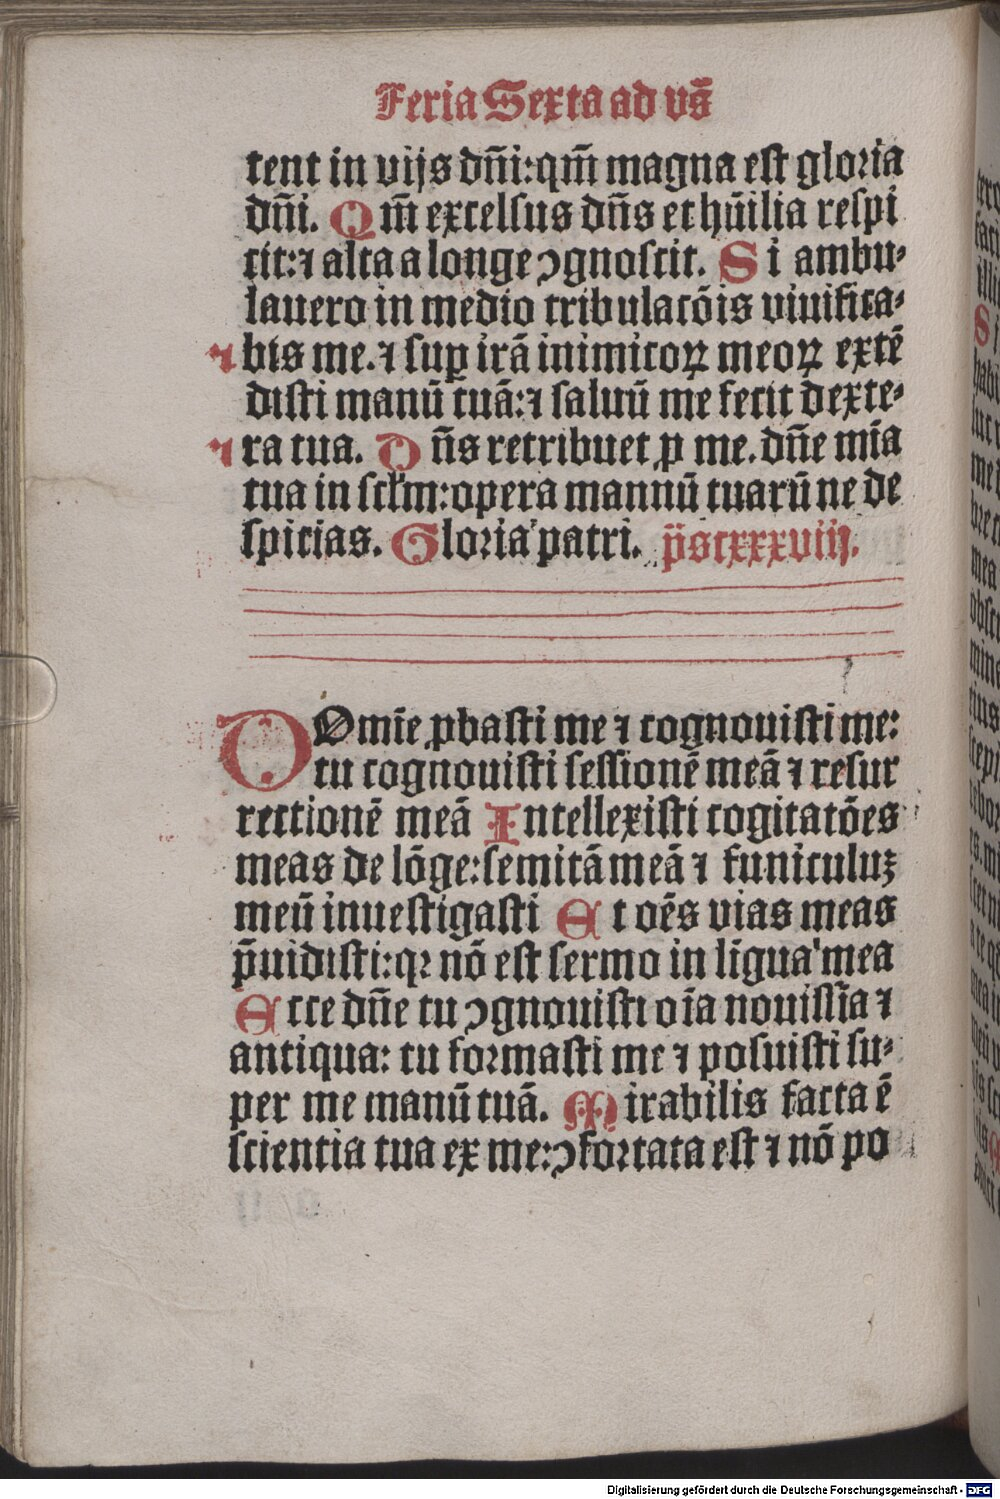 Feria Sexta ad vs̄
tent in vijs dn̄i: qm̄ magna est gloria
dn̄i. Qm̄ excelsus dn̄s et hūilia respi
cit: ⁊ alta a longe ꝯgnoscit. Si ambu-
lauero in medio tribulatōis viuifica-
bis me. ⁊ suꝑ irā inimicoꝝ meoꝝ extē
disti manū tuā: ⁊ saluū me fecit dexte-
ra tua. Dn̄s retribuet ꝓ me. dn̄e mīa
tua in sclm̄: opera manuū tuarū ne de
spicias. Gloria patri. p̄s cxxxviij.
DOmīe ꝓbasti me ⁊ cognouisti me:
tu cognouisti sessionē meā ⁊ resur
rectionē meā Intellexisti cogitatōes
meas de lōge: semitā meā ⁊ funiculuꝫ
meū inuestigasti Et oēs vias meas
p̄uidisti: qꝛ nō est sermo in līgua mea
Ecce dn̄e tu ꝯgnouisti oīa nouissīa ⁊
antiqua: tu formasti me ⁊ posuisti su-
per me manū tuā. Mirabilis facta ē
scientia tua ex me: ꝯfortata est ⁊ nō po
Digitalisierung gefördert durch die Deutsche Forschungsgemeinschaft - DFG